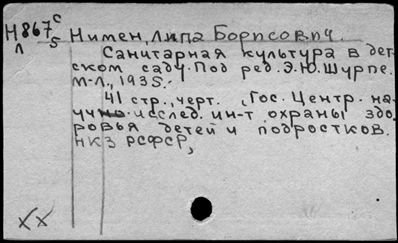 Н867с Нимен, Липа Борисович.
л 5
Санитарная культура в дет-
ском саду. Под ред. Э.Ю. Шурпе.
М-Л., 1935.-
41 стр., черт. (Гос. Центр. на-
учно-исслед. ин-т охраны здо-
ровья детей и подростков.
НКЗ РСФСР,
XX